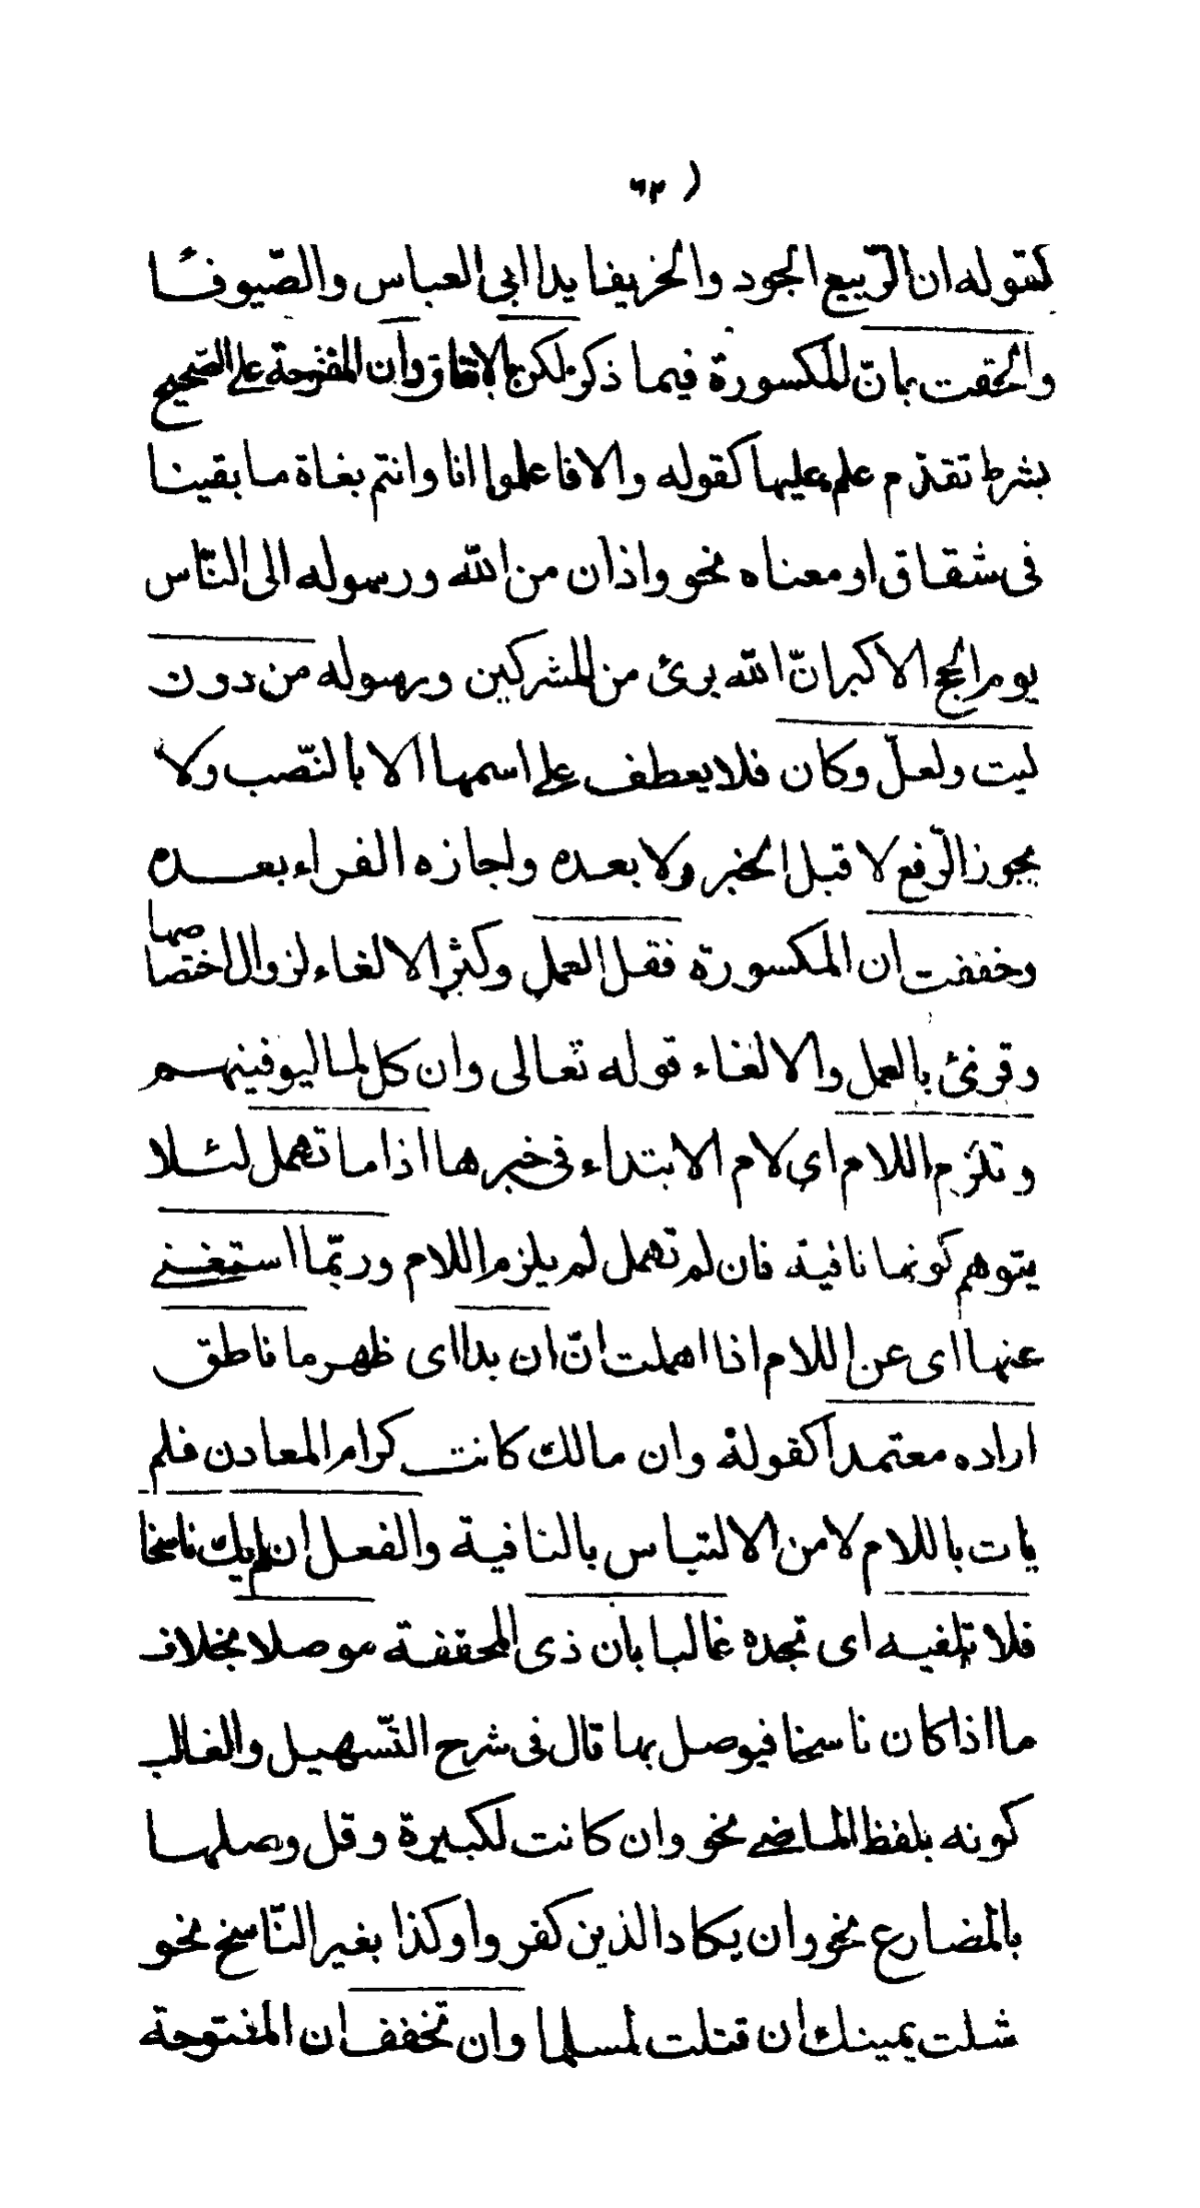 ( ٦٢
كقوله ان الرّبيع الجود والخريفا يدا ابى العباس والصّيوفا
والحقت بانّ المكسورة فيما ذكر لكن بالاتفاق وأن المفتوحة على الصّحيح
بشرط تقدّم علم عليها كقوله والا فاعلموا انا وانتم بغاة ما بقينا
فى شقاق او معناه نحو واذان من اللّه ورسوله الى النّاس
يوم الحج الاكبر انّ اللّه برئ من المشركين ورسوله من دون
ليت ولعلّ وكان فلا يعطف على اسمها الا بالنّصب ولا
يجوز الرّفع لا قبل الخبر ولا بعده واجازه الفراء بعده
وخففت ان المكسورة فقل العمل وكثر الالغاء لزوال اختصاصها
وقرئ بالعمل والالغاء قوله تعالى وان كل لما ليوفينهم
وتلزم اللام اى لام الابتداء فى خبرها اذا ما تهمل لئلا
يتوهم كونها نافية فان لم تهمل لم يلزم اللام وربّما استغنى
عنها اى عن اللام اذا اهملت انّ ان بدا اى ظهر ما ناطق
اراده معتمدا كقوله وان مالك كانت كرام المعادن فلم
يات باللام لامن الالتباس بالنافية والفعل ان لم يك ناسخا
فلا تلفيه اى تجده غالبا بأن ذى المخففة موصلا بخلاف
ما اذا كان ناسخا فيوصل بها قال فى شرح التّسهيل والغالب
كونه بلفظ الماضى نحو وان كانت لكبيرة وقل وصلها
بالمضارع نحو وان يكاد الذين كفروا وكذا بغير النّاسخ نحو
شلت يمينك ان قتلت لمسلما وان تخفف ان المفتوحة